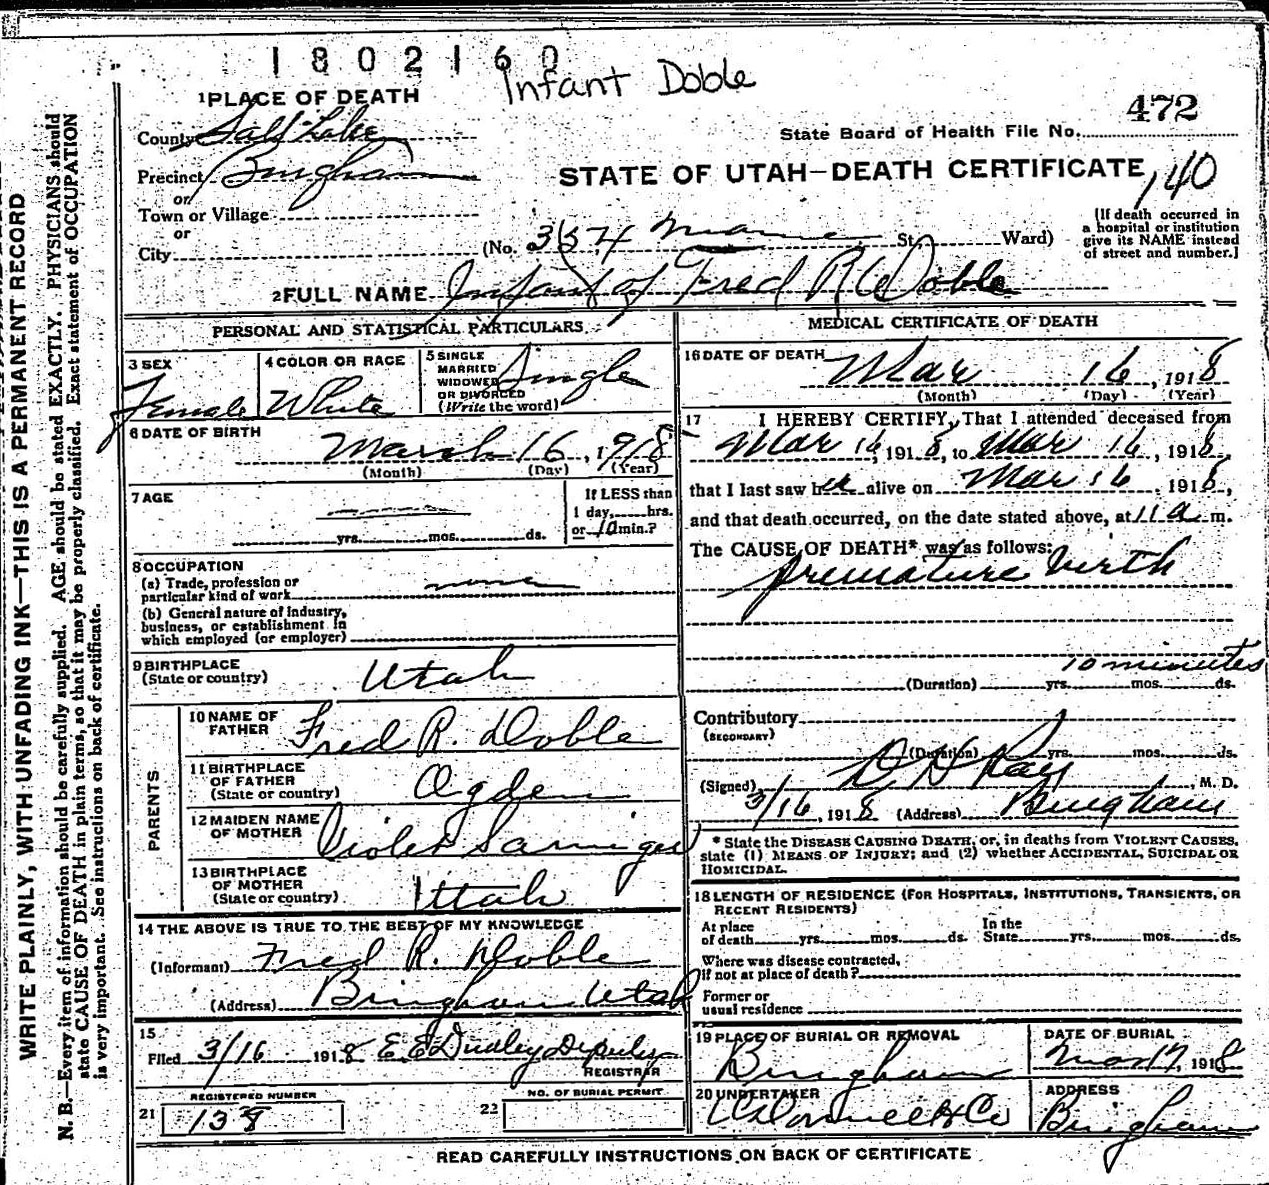 1802160
Infant Doble
472
1 PLACE OF DEATH
State Board of Health File No.
County Salt Lake
Precinct Bingham
STATE OF UTAH—DEATH CERTIFICATE
140
or
Town or Village
or
City
(No. 354 Main St. Ward)
(If death occurred in
a hospital or institution
give its NAME instead
of street and number.]
2 FULL NAME Infant of Fred R Doble
PERSONAL AND STATISTICAL PARTICULARS
3 SEX
Female
4 COLOR OR RACE
White
5 SINGLE
MARRIED
WIDOWED
OR DIVORCED
(Write the word)
Single
6 DATE OF BIRTH
March 16, 1918
(Month) (Day) (Year)
7 AGE
yrs. mos. ds.
If LESS than
1 day, hrs.
or 10 min.?
8 OCCUPATION
(a) Trade, profession or
particular kind of work none
(b) General nature of industry,
business, or establishment in
which employed (or employer)
9 BIRTHPLACE
(State or country) Utah
PARENTS
10 NAME OF
FATHER Fred R. Doble
11 BIRTHPLACE
OF FATHER
(State or country) Ogden
12 MAIDEN NAME
OF MOTHER Violet
13 BIRTHPLACE
OF MOTHER
(State or country) Utah
14 THE ABOVE IS TRUE TO THE BEST OF MY KNOWLEDGE
(Informant) Fred R. Doble
(Address) Bingham Utah
15
Filed 3/16 1918 E E Dudley Deputy
REGISTRAR
REGISTERED NUMBER
21 138
NO. OF BURIAL PERMIT
22
MEDICAL CERTIFICATE OF DEATH
16 DATE OF DEATH
Mar 16, 1918
(Month) (Day) (Year)
17 I HEREBY CERTIFY, That I attended deceased from
Mar 16, 1918, to Mar 16, 1918,
that I last saw her alive on Mar 16, 1918,
and that death occurred, on the date stated above, at 11 a m.
The CAUSE OF DEATH* was as follows:
premature birth
10 minutes
(Duration) yrs. mos. ds.
Contributory
(SECONDARY)
(Duration) yrs. mos. ds.
(Signed) D D Ray, M. D.
3/16, 1918 (Address) Bingham
* State the DISEASE CAUSING DEATH, or, in deaths from VIOLENT CAUSES,
state (1) MEANS OF INJURY; and (2) whether ACCIDENTAL, SUICIDAL OR
HOMICIDAL.
18 LENGTH OF RESIDENCE (FOR HOSPITALS, INSTITUTIONS, TRANSIENTS, OR
RECENT RESIDENTS)
At place
of death yrs. mos. ds.
In the
State yrs. mos. ds.
Where was disease contracted,
if not at place of death?
Former or
usual residence
19 PLACE OF BURIAL OR REMOVAL
Bingham
DATE OF BURIAL
Mar 17, 1918
20 UNDERTAKER
& Co
ADDRESS
Bingham
READ CAREFULLY INSTRUCTIONS ON BACK OF CERTIFICATE
WRITE PLAINLY, WITH UNFADING INK—THIS IS A PERMANENT RECORD
N. B.—Every item of information should be carefully supplied. AGE should be stated EXACTLY. PHYSICIANS should
state CAUSE OF DEATH in plain terms, so that it may be properly classified. Exact statement of OCCUPATION
is very important. See instructions on back of certificate.